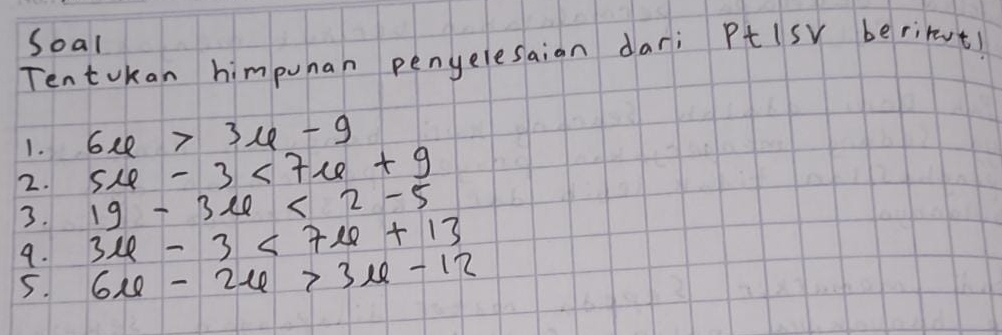 Soal
Tentukan himpunan penyelesaian dari PtlSV berikut!
1. 6x > 3x - 9
2. 5x - 3 < 7x + 9
3. 19 - 3x < 2 - 5
4. 3x - 3 < 7x + 13
5. 6x - 2x > 3x - 12